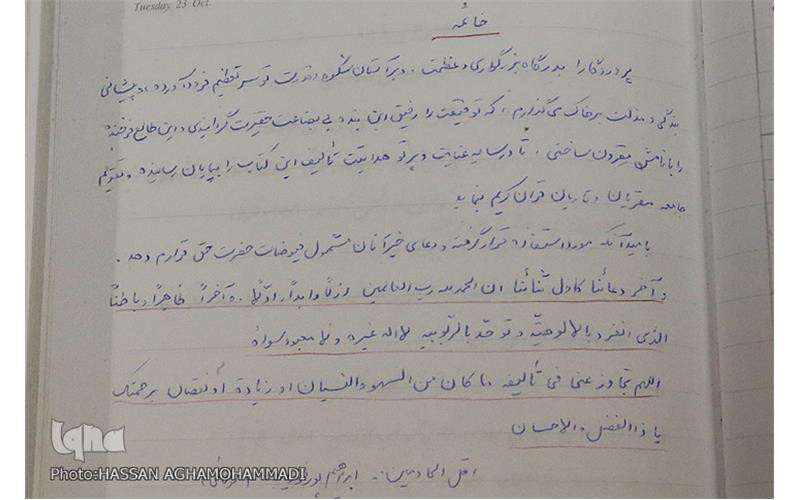 Tuesday 23 Oct.
خاتمه
پروردگارا بدرگاه بزرگواری و عظمتت، و بر آستان شکوه و قدرتت سر تعظیم فرود آورده، و پیشانی
بندگی و مذلت بر خاک می‌گذارم، که توفیقت را رفیق این بنده بی بضاعت حقیرت گردانیدی و این طالع فرخنده
را با نامش مقرون ساختی، تا در سایه عنایت و پرتو هدایتت تألیف این کتاب را بپایان رسانیده و تقدیم
جامعه مقریان و قاریان قرآن کریم بنماید
بامید آنکه مورد استفاده قرار گرفته و دعای خیر آنان مشمول فیوضات حضرت حق قرارم دهد.
و آخر دعائنا کاول ثنائنا ان الحمد لله رب العالمین ازلاً و ابداً، اولاً، و آخراً ظاهراً و باطناً
الذی انفرد بالالوهیّه و توحّد بالربوبیه لا اله غیره و لا معبود سواهُ
اللهم تجاوز عنی فی تألیفه ما کان من السهو و النسیان او زیادة او نقصان برحمتک
یا ذا الفضل و الاحسان
اقل الخادمین: ابراهیم
iqna
Photo:HASSAN AGHAMOHAMMADI